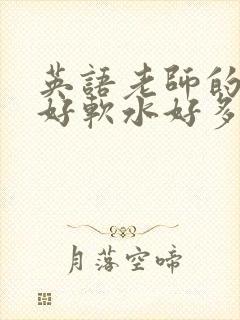 英語老師的
好軟水好多
月落空啼